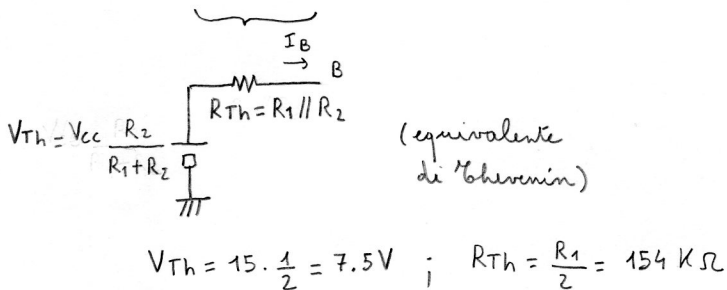 I_B
B
R_Th = R_1 // R_2
V_Th = V_cc R_2 / (R_1 + R_2)
(equivalente
di Thevenin)
V_Th = 15 · 1/2 = 7.5 V ; R_Th = R_1/2 = 154 KΩ